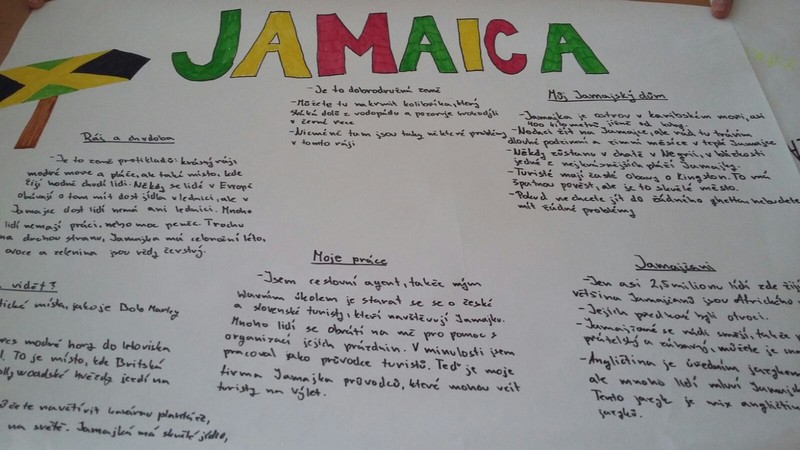 JAMAICA
- Je to dobrodružná země
- Můžete tu nakrmit kolibříka, který
sletí dolů z vodopádu a pozoruje krokodýli
v černé řece
- Nicméně tu jsou taky některé problémy
v tomto ráji
Můj Jamajský dům
- Jamajka je ostrov v karibském moři, asi
400 kilometrů jižně od Kuby.
- Nedaci žít na Jamajce, ale rád tu trávím
dlouhé podzimní a zimní měsíce v teplé Jamajce
- Někdy zůstanu v chatě v Negrii, v blízkosti
jedné z nejkrásnějších pláží Jamajky.
- Turisté mají časté obavy o Kingston. To má
špatnou pověst, ale je to skvělé město.
- Pokud nechcete jít do žádného ghetta nebudete
mít žádné problémy
Ráj a chudoba
- Je to země protikladů: krásný ráj,
modré moře a pláže, ale také místo, kde
žijí hodně chudí lidi. Někdy se lidé v Evropě
obávají o tom mít dost jídla v lednici, ale v
Jamajce dost lidí nemá ani lednici. Mnoho
lidí nemají práci, nebo moc peněz. Trochu
na druhou stranu, Jamajka má celoroční léto,
ovoce a zelenina jsou vždy čerstvý.
Moje práce
- Jsem cestovní agent, takže mým
hlavním úkolem je starat se o české
a slovenské turisty, kteří navštěvují Jamajku.
Mnoho lidí se obrátí na mě pro pomoc s
organizací jejich prázdnin. V minulosti jsem
pracoval jako průvodce turistů. Teď je moje
firma Jamajka průvodců, které mohou vzít
turisty na výlet.
Jamajčani
- Jen asi 2,5 milionu lidí zde žij
většina Jamajčanů jsou Afrického
- Jejich předkové byli otroci.
- Jamajčané se rádi smějí, takže
přátelský a zábavný, můžete je
- Angličtina je úředním jazykem
ale mnoho lidí mluví Jamajsk
Tento jazyk je mix angličtin
jazyků.
vidět?
tické místa, jako je Bob Marley
přes modré hory do letoviska
To je místo, kde Britská
ollywoodské hvězdy jezdí na
ůžete navštívit
na světě. Jamajka má skvělé jídlo,